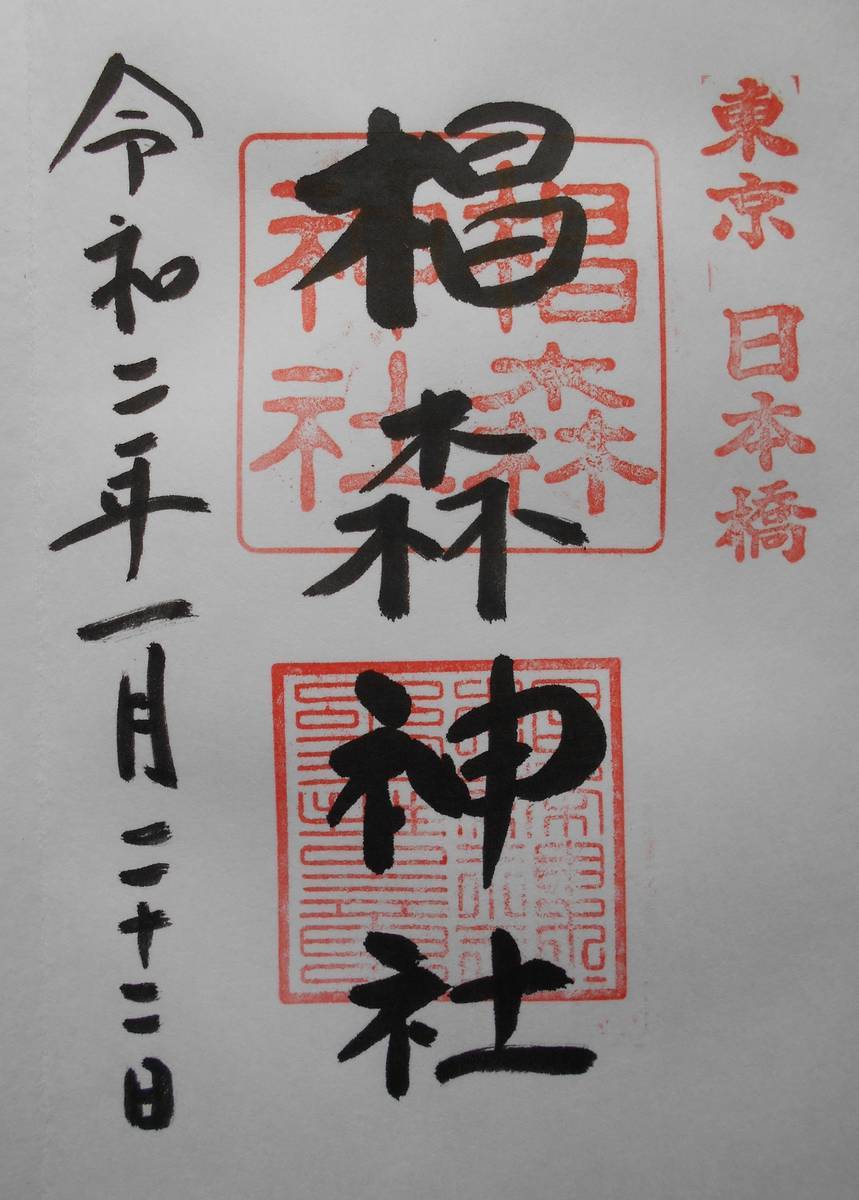 東京 日本橋
椙森神社
椙森
神社
令和二年一月二十二日